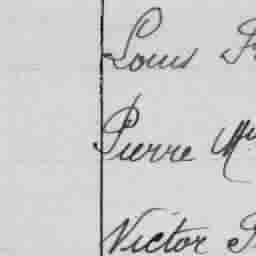 Louis
Pierre
Victor